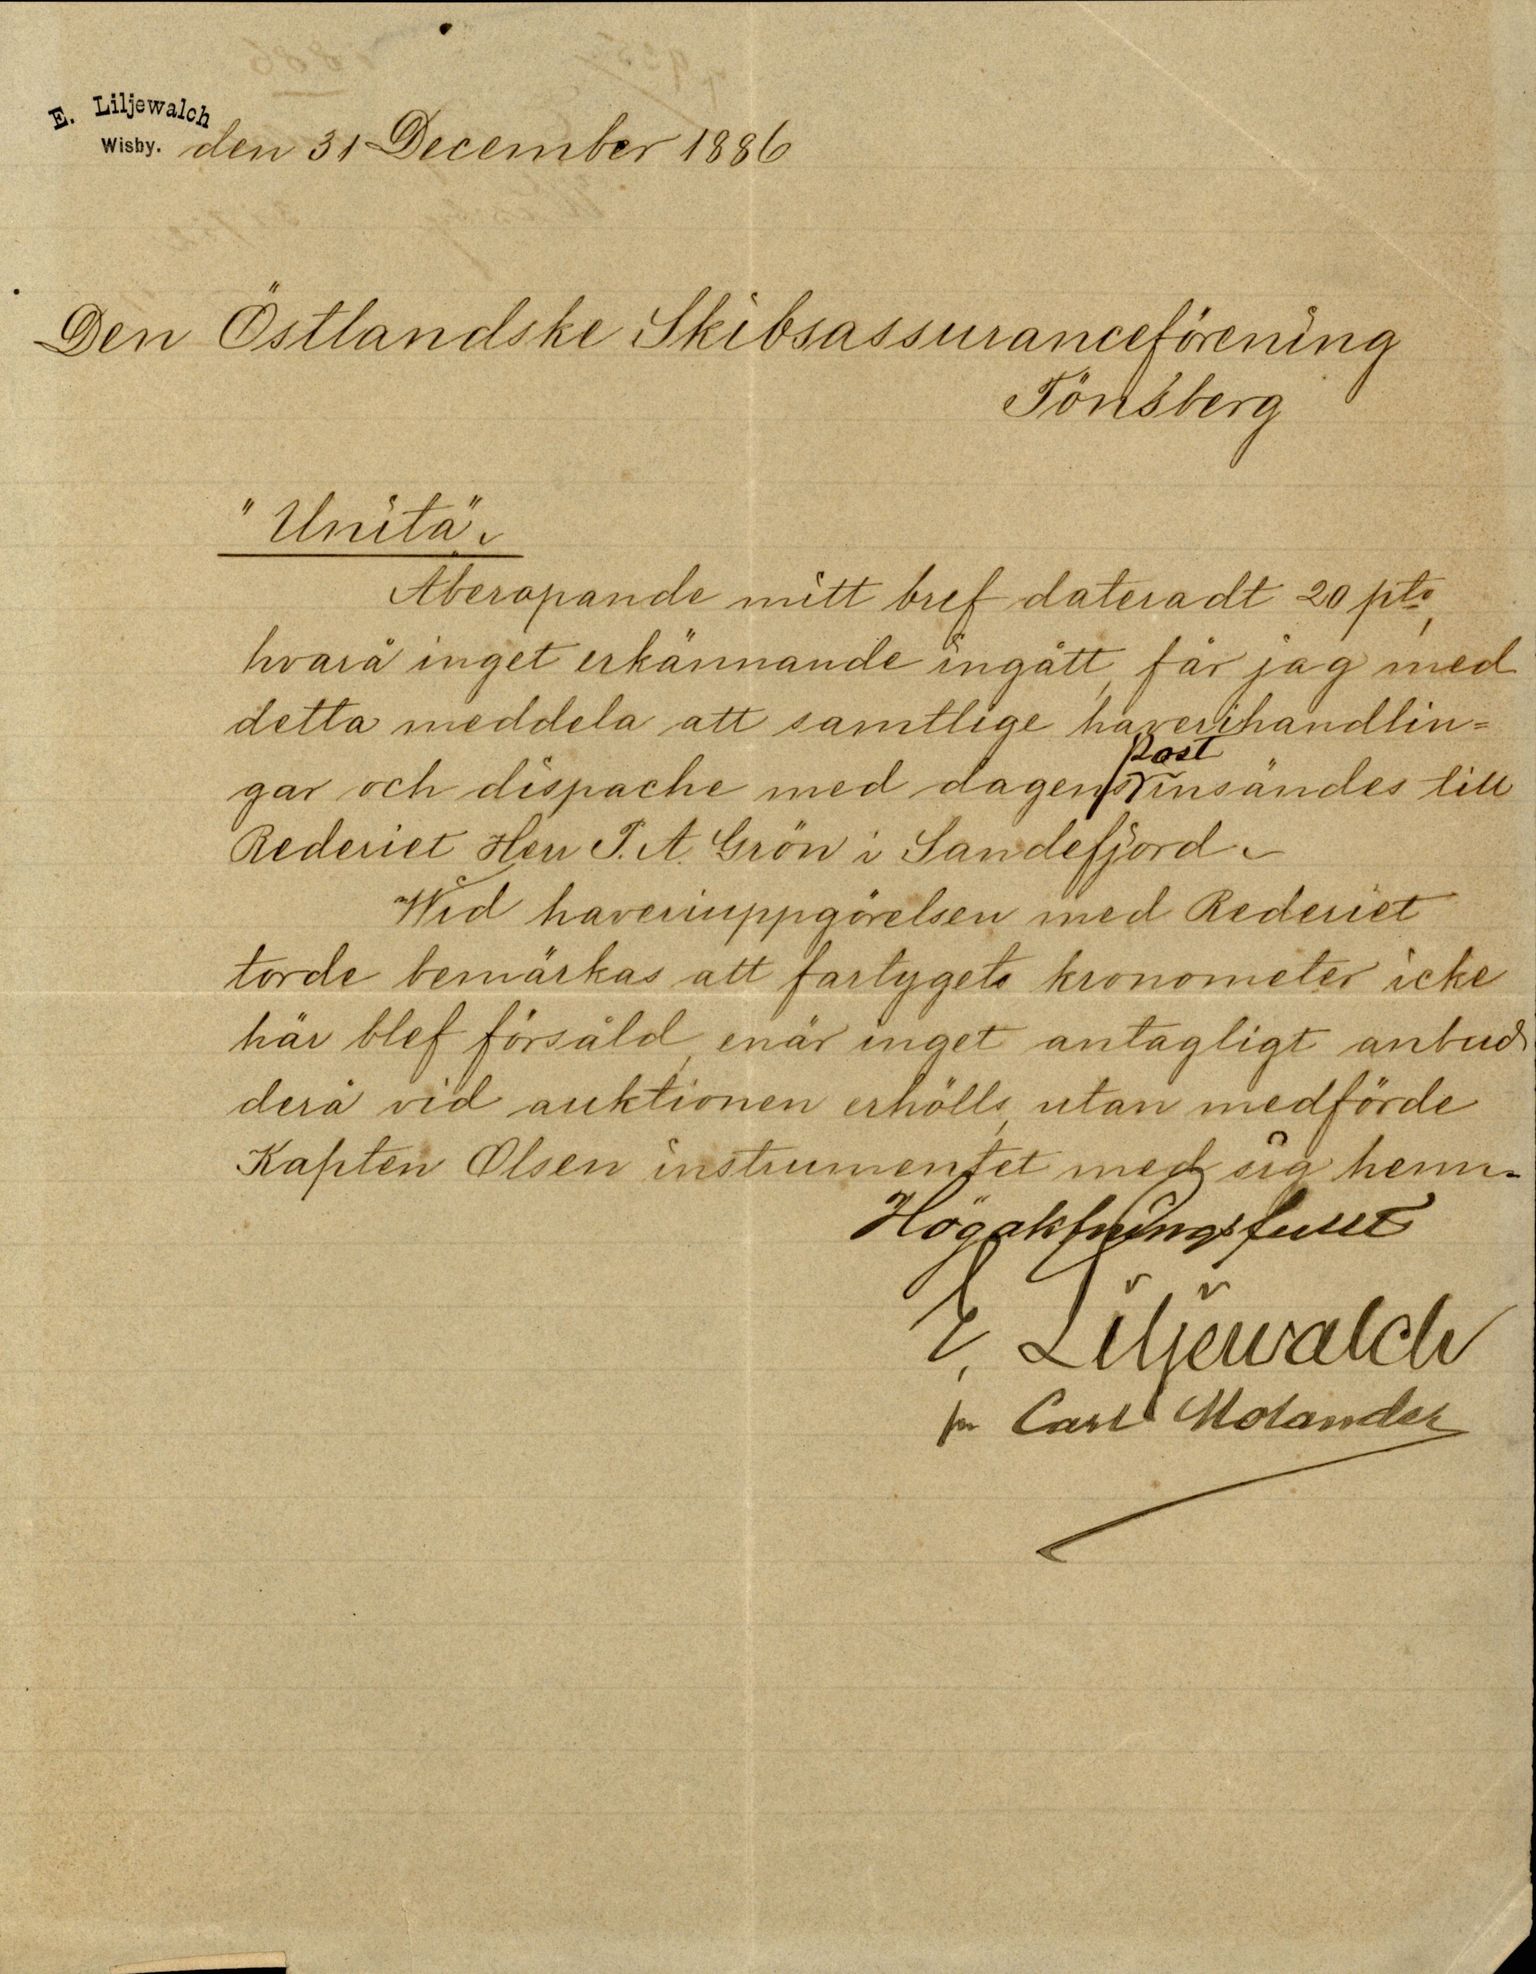 E. Liljewalch
Wisby. den 31 December 1886
Den Östlandske Skibsassuranceförening
Tönsberg
"Unita".
Åberopande mitt bref dateradt 20 pto,
hvarå inget erkännande ingått, får jag med
detta meddela att samtlige haverihandlin=
gar och dispache med dagens post insändes till
Rederiet Herr P. A. Grön i Sandefjord.
Wid haveriuppgörelsen med Rederiet
torde bemärkas att fartygets kronometer icke
här blef försåld, enär inget antagligt anbud
derå vid auktionen erhölls, utan medförde
Kapten Olsen instrumentet med sig hem.
Högaktningsfullt
E. Liljewalch
pr Carl Molander